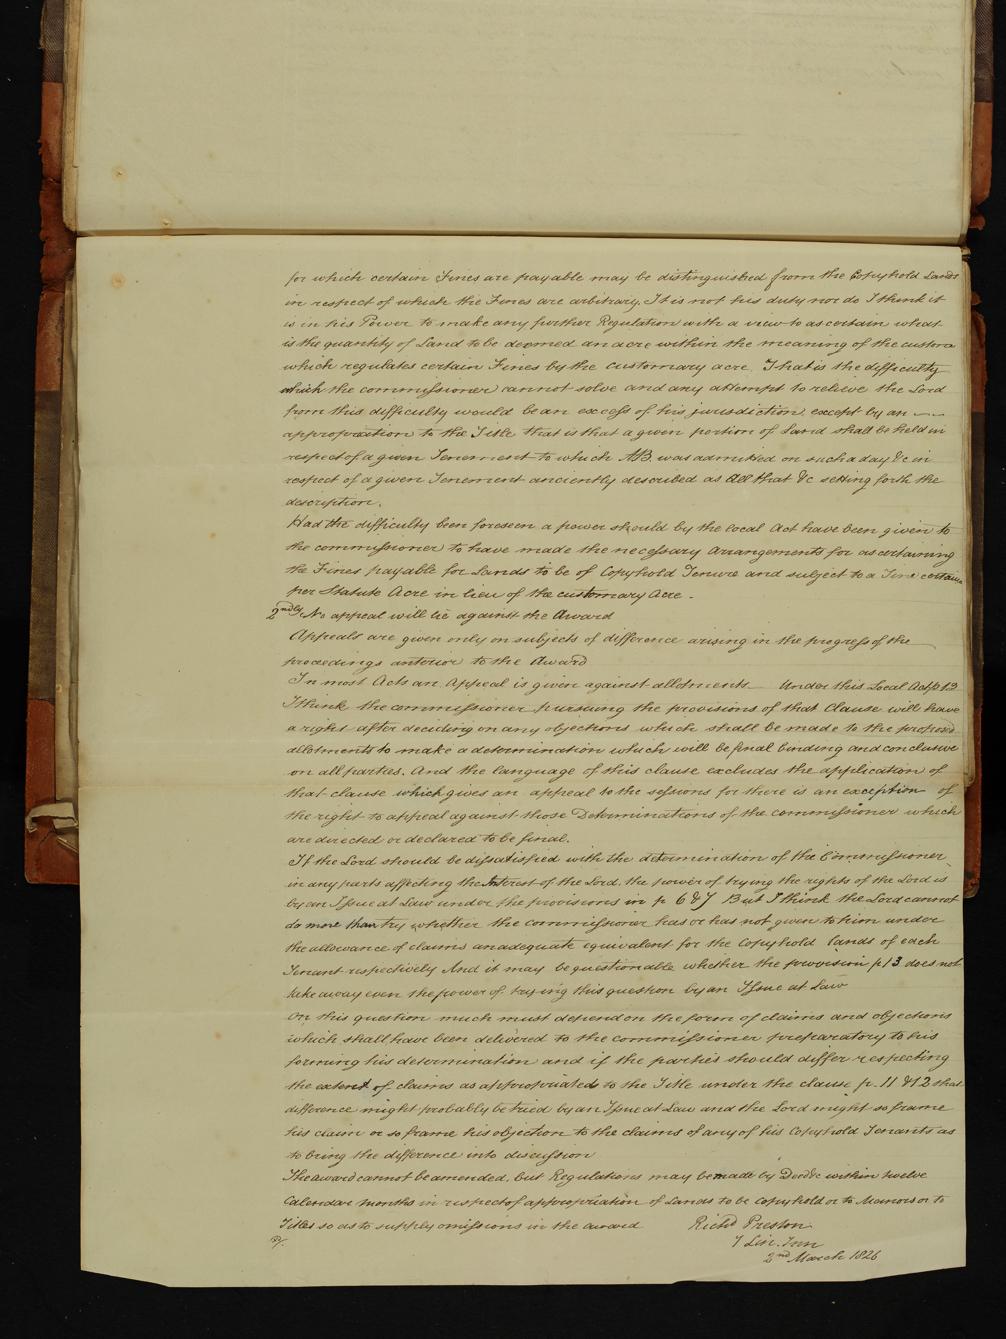 for which certain Fines are payable may be distinguished from the Copyhold Lands
in respect of which the Fines are arbitrary. It is not his duty nor do I think it
is in his Power to make any further Regulation with a view to ascertain what
is the quantity of Land to be deemed an acre within the meaning of the custom
which regulates certain Fines by the customary acre. That is the difficulty
which the commissioner cannot solve and any attempt to relieve the Lord
from this difficulty would be an excess of his jurisdiction, except by an
appropriation to the Title that is that a given portion of Land shall be held in
respect of a given Tenement to which AB. was admitted on such a day &c in
respect of a given Tenement anciently described as All that &c setting forth the
description.
Had the difficulty been foreseen a power should by the local Act have been given to
the commissioner to have made the necessary arrangements for ascertaining
the Fines payable for Lands to be of Copyhold Tenure and subject to a Fine certain
per Statute Acre in lieu of the customary Acre.
2ndly No appeal will lie against the Award
Appeals are given only on subjects of difference arising in the progress of the
proceedings anterior to the Award
In most Acts an Appeal is given against allotments Under this Local Act p 13
I think the commissioner pursuing the provisions of that Clause will have
a right after deciding on any objections which shall be made to the proposed
allotments to make a determination which will be final binding and conclusive
on all parties. And the language of this clause excludes the application of
that clause which gives an appeal to the sessions for there is an exception of
the right to appeal against those Determinations of the commissioner which
are directed or declared to be final.
If the Lord should be dissatisfied with the determination of the Commissioner
in any parts affecting the Interest of the Lord, the power of trying the rights of the Lord is
by an Issue at Law under the provisions in p 6 & 7 But I think the Lord cannot
do more than try whether the commissioner has or has not given to him under
the allowance of claims an adequate equivalent for the Copyhold lands of each
Tenant respectively And it may be questionable whether the provision p 13 does not
take away even the power of trying this question by an Issue at Law
On this question much must depend on the form of claims and objections
which shall have been delivered to the commissioner preparatory to his
forming his determination and if the parties should differ respecting
the extent of claims as appropriated to the Title under the clause p. 11 & 12 that
difference might probably be tried by an Issue at Law and the Lord might so frame
his claim or so frame his objection to the claims of any of his Copyhold Tenants as
to bring the difference into discussion
The award cannot be amended, but Regulations may be made by Deed &c within twelve
Calendar months in respect of appropriation of Lands to be copyhold or to Manors or to
Titles so as to supply omissions in the award
Richd Preston
7 Lin. Inn
2nd March 1826